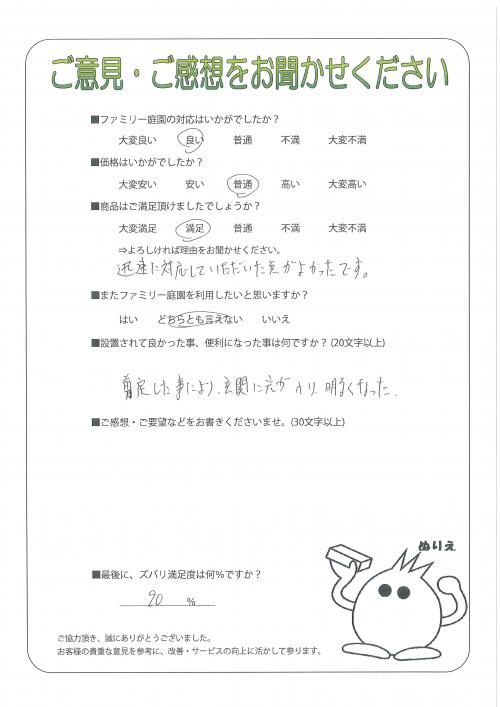 ご意見・ご感想をお聞かせください
■ファミリー庭園の対応はいかがでしたか？
大変良い 良い 普通 不満 大変不満
■価格はいかがでしたか？
大変安い 安い 普通 高い 大変高い
■商品はご満足頂けましたでしょうか？
大変満足 満足 普通 不満 大変不満
⇒よろしければ理由をお聞かせください。
迅速に対応していただいた点がよかったです。
■またファミリー庭園を利用したいと思いますか？
はい どちらとも言えない いいえ
■設置されて良かった事、便利になった事は何ですか？(20文字以上)
剪定した事により、玄関に光が入り、明るくなった.
■ご感想・ご要望などをお書きくださいませ。(30文字以上)
ぬりえ
■最後に、ズバリ満足度は何％ですか？
90 ％
ご協力頂き、誠にありがとうございました。
お客様の貴重な意見を参考に、改善・サービスの向上に活かして参ります。